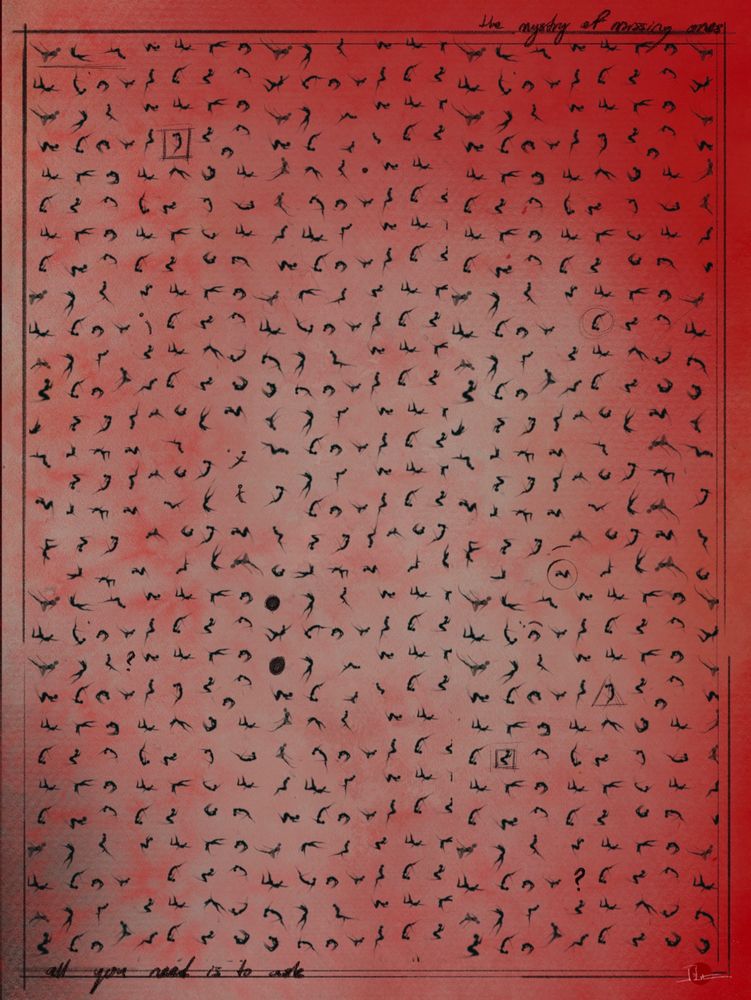 the mystry of missing ones
?
?
all you need is to ask